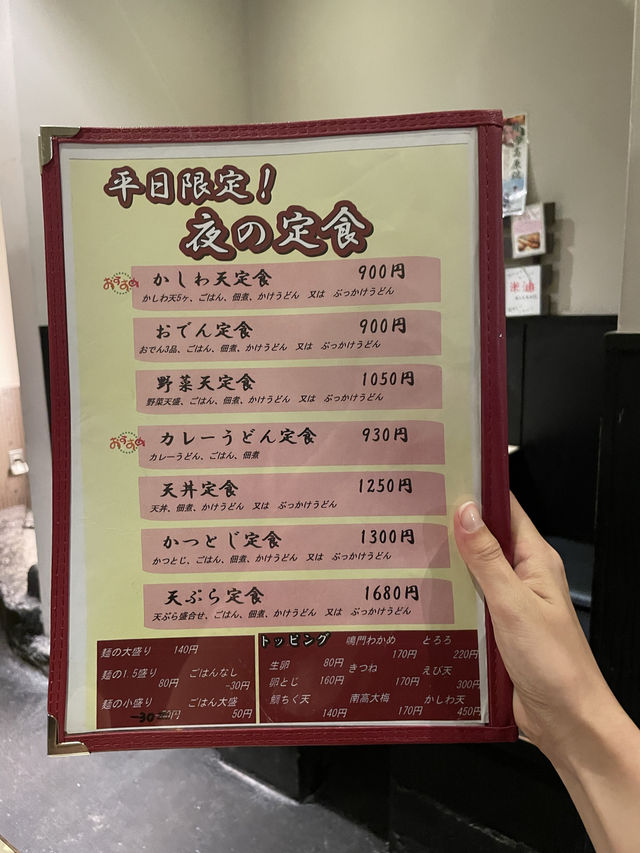 平日限定!
夜の定食
おすすめ
かしわ天定食 900円
かしわ天5ヶ、ごはん、佃煮、かけうどん 又は ぶっかけうどん
おでん定食 900円
おでん3品、ごはん、佃煮、かけうどん 又は ぶっかけうどん
野菜天定食 1050円
野菜天盛、ごはん、佃煮、かけうどん 又は ぶっかけうどん
おすすめ
カレーうどん定食 930円
カレーうどん、ごはん、佃煮
天丼定食 1250円
天丼、佃煮、かけうどん 又は ぶっかけうどん
かつとじ定食 1300円
かつとじ、ごはん、佃煮、かけうどん 又は ぶっかけうどん
天ぷら定食 1680円
天ぷら盛合せ、ごはん、佃煮、かけうどん 又は ぶっかけうどん
麺の大盛り 140円
麺の1.5盛り 80円
ごはんなし -30円
麺の小盛り -30円
ごはん大盛 50円
トッピング
生卵 80円
卵とじ 160円
鯛ちく天 140円
鳴門わかめ 170円
きつね 170円
南高大梅 170円
とろろ 220円
えび天 300円
かしわ天 450円
米油